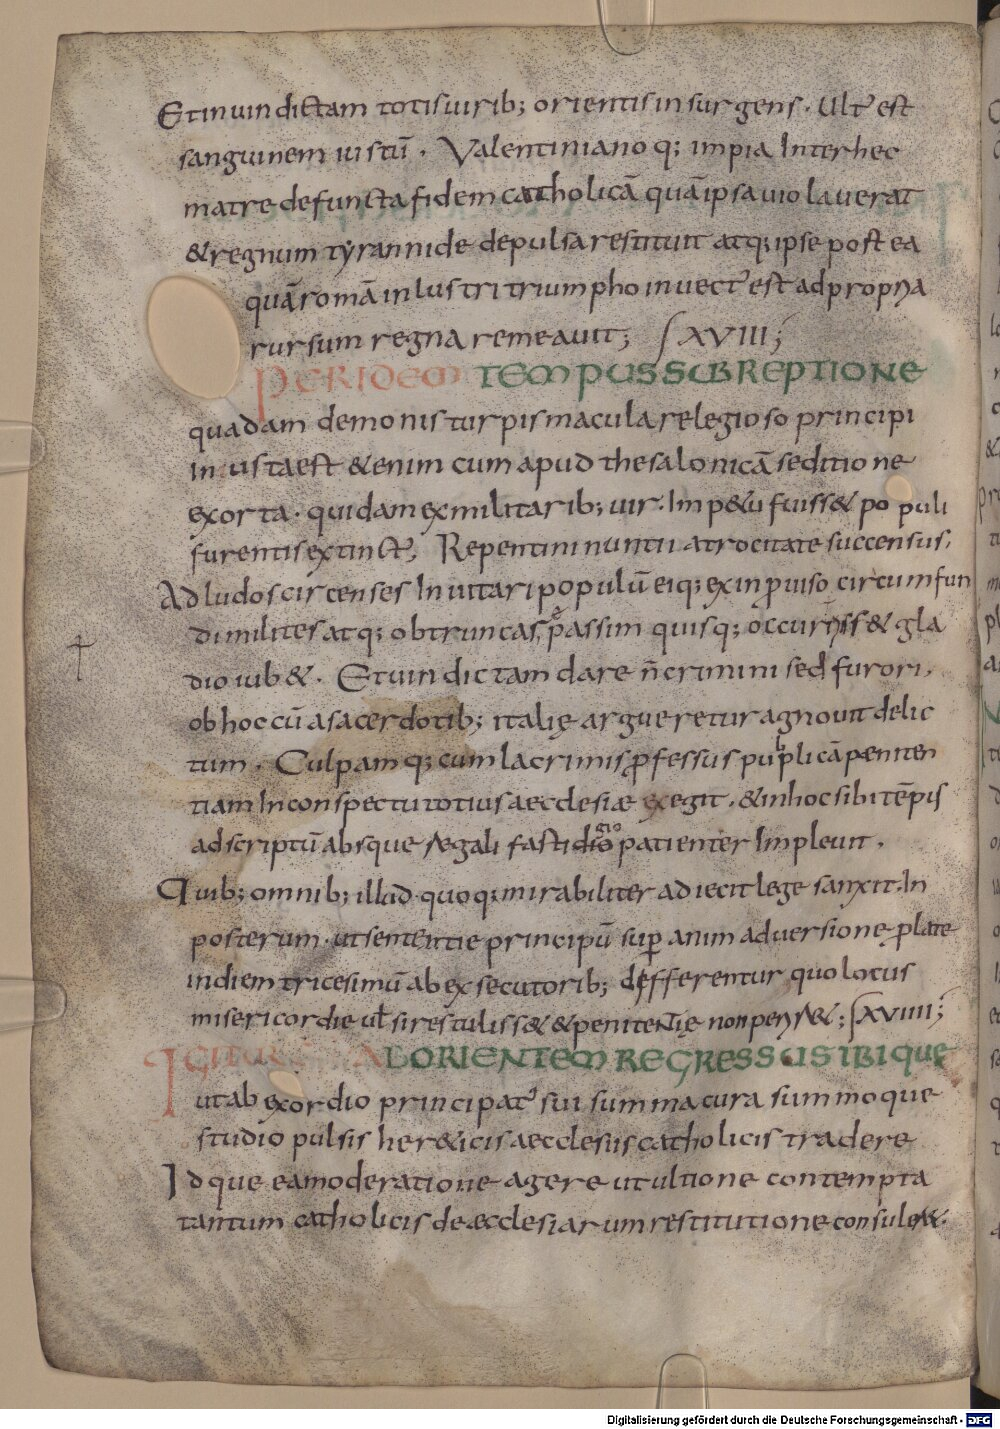 Et in uindictam totis uirib; orientis insurgens · Ult' est
sanguinem iustū · Valentiniano q; impia Interhec
matre defuncta fidem catholicā quā ipsa uiolauerat
& regnum tyrannide depulsa restituit atq; ipse postea
quā romā inlustri triumpho inuect' est ad propria
rursum regna remeauit; XVIII;
PER IDEM TEMPUS SUBREPTIONE
quadam demonis turpis macula relegioso principi
inusta est &enim cum apud thesalonicā seditione
exorta · quidam ex militarib; uir · Imp&u fuiss& populi
furentis extinct', Repentini nuntii atrocitate succensus,
Ad ludos circenses Inuitari populū eiq; ex inprouiso circumfun
di milites atq; obtruncas, passim quisq; occurriss& gla
dio iub& · Et uindictam dare n̄ crimini sed furori,
ob hoc cū a sacerdotib; italię argueretur agnouit delic
tum · Culpam q; cum lacrimis professus puplicā peniten
tiam In conspectu totius aecclesiæ exegit · & in hoc sibi tēpis
adscriptū absque regali fastidio patienter Impleuit ·
Quib; omnib; illud quoq; mirabiliter adiecit lege sanxit · In
posterum · ut sententie principū super animaduersione plate
in diem tricesimū ab exsecutorib; defferentur quo locus
misericordie ut̄ si res tuliss& & penitentię non peri r&; XVIIII;
IGITUR AD ORIENTEM REGRESSUS IBIQUE
ut ab exordio principat' sui summa cura summoque
studio pulsis her&icis aecclesiis catholicis tradere
Idque ea moderatione agere ut ultione contempta
tantum catholicis de æcclesiarum restitutione consuler&.
Digitalisierung gefördert durch die Deutsche Forschungsgemeinschaft - DFG